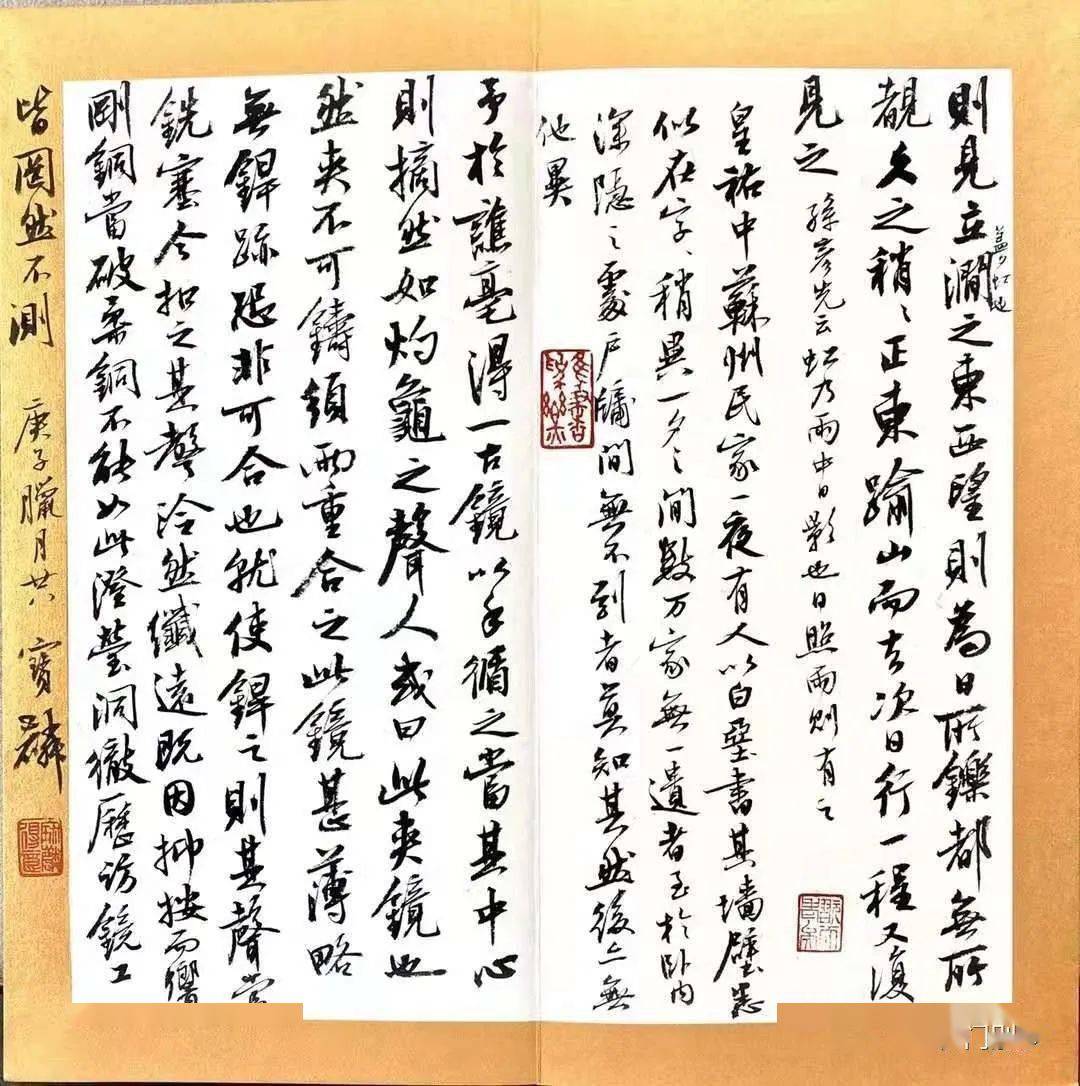 則見立澗之東西望則為日所鑠都無所
蓋夕虹也
覩久之稍〻正東踰山而去次日行一程又復
見之 孫彥先云虹乃雨中日影也日照雨則有之
皇祐中蘇州民家一夜有人以白堊書其墻壁悉
似在字〻稍異一夕之間數万家無一遺者至於卧内
深隱之處戶牖間無不到者莫知其然後亦無
他異
予於譙亳得一古鏡以手循之當其中心
則摘然如灼龜之聲人或曰此夾鏡也
然夾不可鑄須兩重合之此鏡甚薄略
無銲跡恐非可合也就使銲之則其聲當
銑塞今扣之其聲泠然纖遠既因抑按而響
剛銅當破柔銅不能如此澄瑩洞徹歷訪鏡工
皆罔然不測 庚子臘月廿六 寶麟